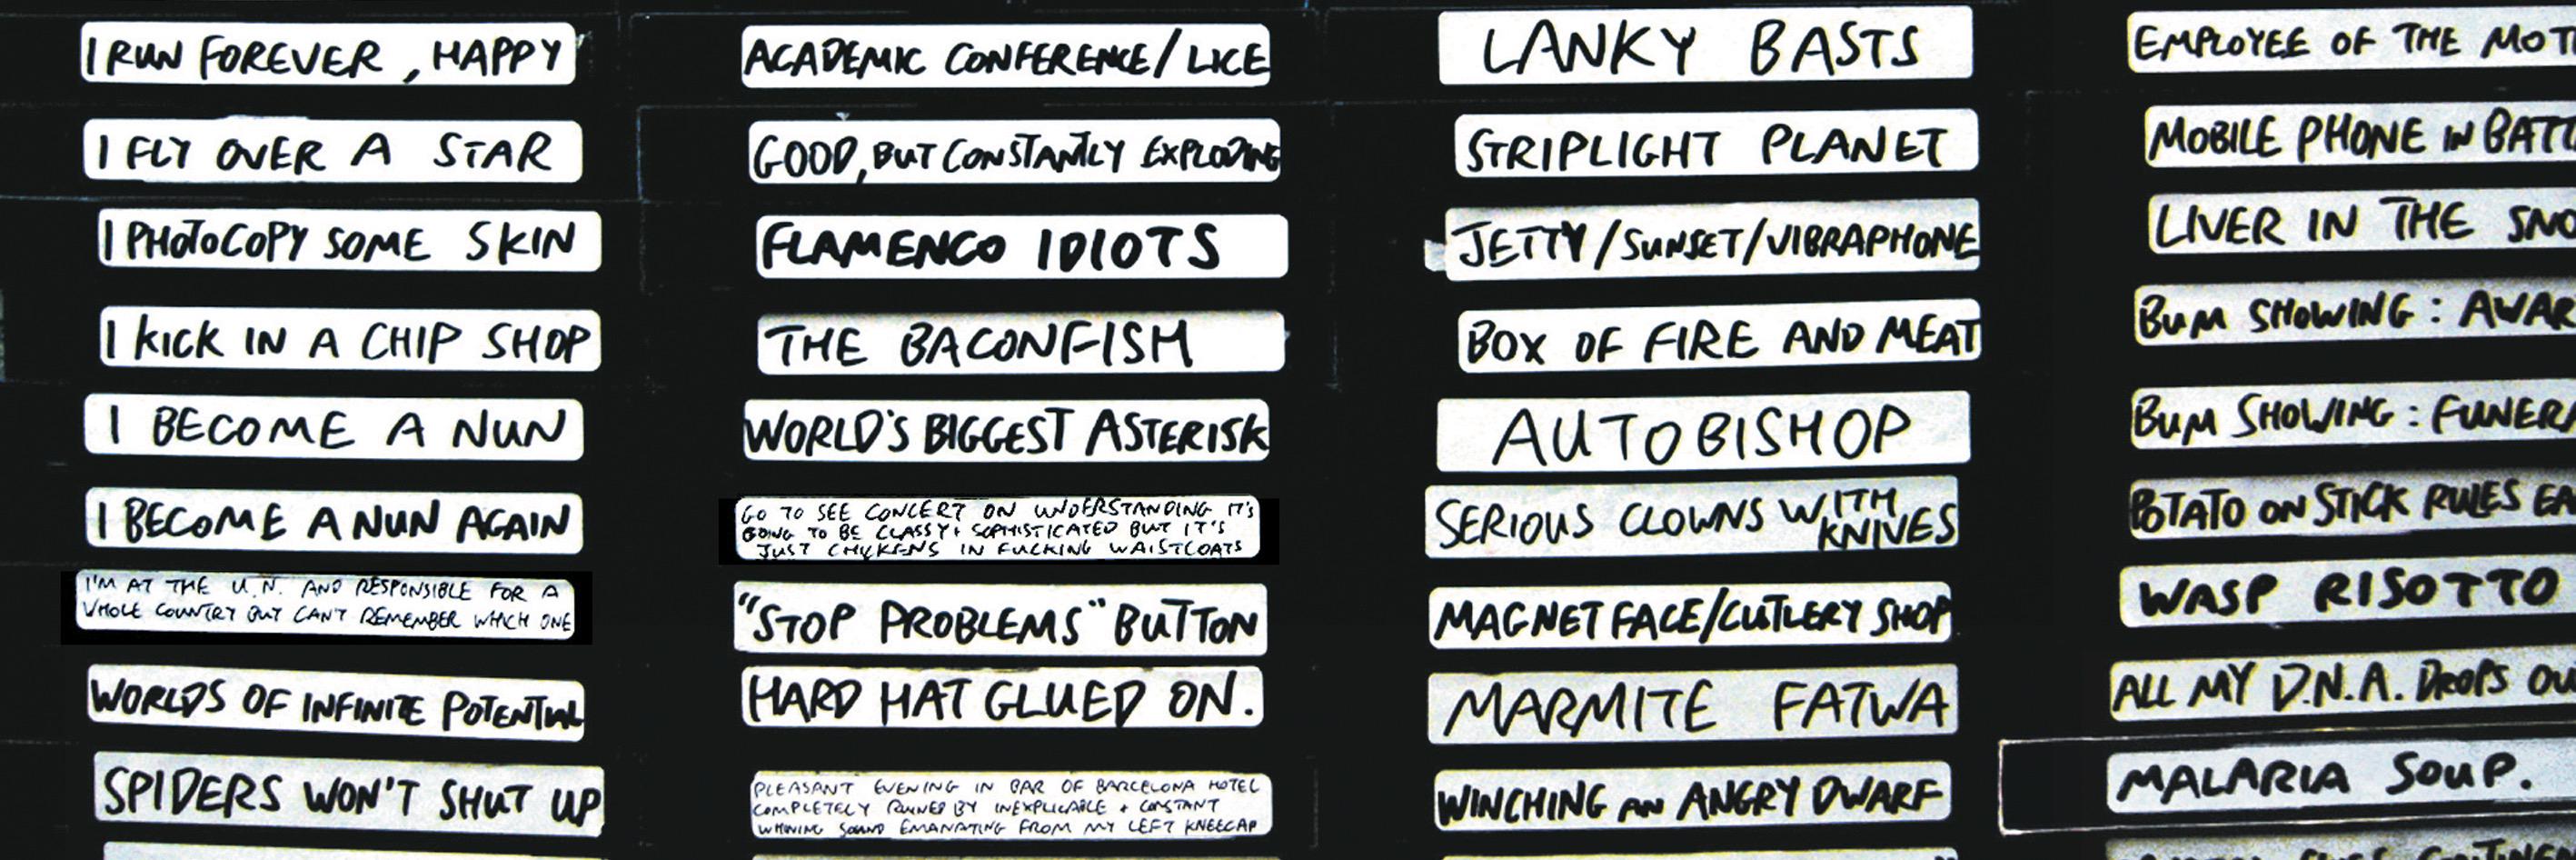 I RUN FOREVER, HAPPY
I FLY OVER A STAR
I PHOTOCOPY SOME SKIN
I KICK IN A CHIP SHOP
I BECOME A NUN
I BECOME A NUN AGAIN
I'M AT THE U.N. AND RESPONSIBLE FOR A
WHOLE COUNTRY BUT CAN'T REMEMBER WHICH ONE
WORLDS OF INFINITE POTENTIAL
SPIDERS WON'T SHUT UP
ACADEMIC CONFERENCE/LICE
GOOD, BUT CONSTANTLY EXPLODING
FLAMENCO IDIOTS
THE BACONFISH
WORLD'S BIGGEST ASTERISK
GO TO SEE CONCERT ON UNDERSTANDING IT'S
GOING TO BE CLASSY + SOPHISTICATED BUT IT'S
JUST CHICKENS IN FUCKING WAISTCOATS
"STOP PROBLEMS" BUTTON
HARD HAT GLUED ON.
PLEASANT EVENING IN BAR OF BARCELONA HOTEL
COMPLETELY RUINED BY INEXPLICABLE + CONSTANT
WHINING SOUND EMANATING FROM MY LEFT KNEECAP
LANKY BASTS
STRIPLIGHT PLANET
JETTY/SUNSET/VIBRAPHONE
BOX OF FIRE AND MEAT
AUTOBISHOP
SERIOUS CLOWNS WITH
KNIVES
MAGNET FACE/CUTLERY SHOP
MARMITE FATWA
WINCHING AN ANGRY DWARF
EMPLOYEE OF THE
MOBILE PHONE IN
LIVER IN THE
BUM SHOWING:
BUM SHOWING:
POTATO ON STICK RULES
WASP RISOTTO
ALL MY D.N.A. DROPS
MALARIA SOUP.